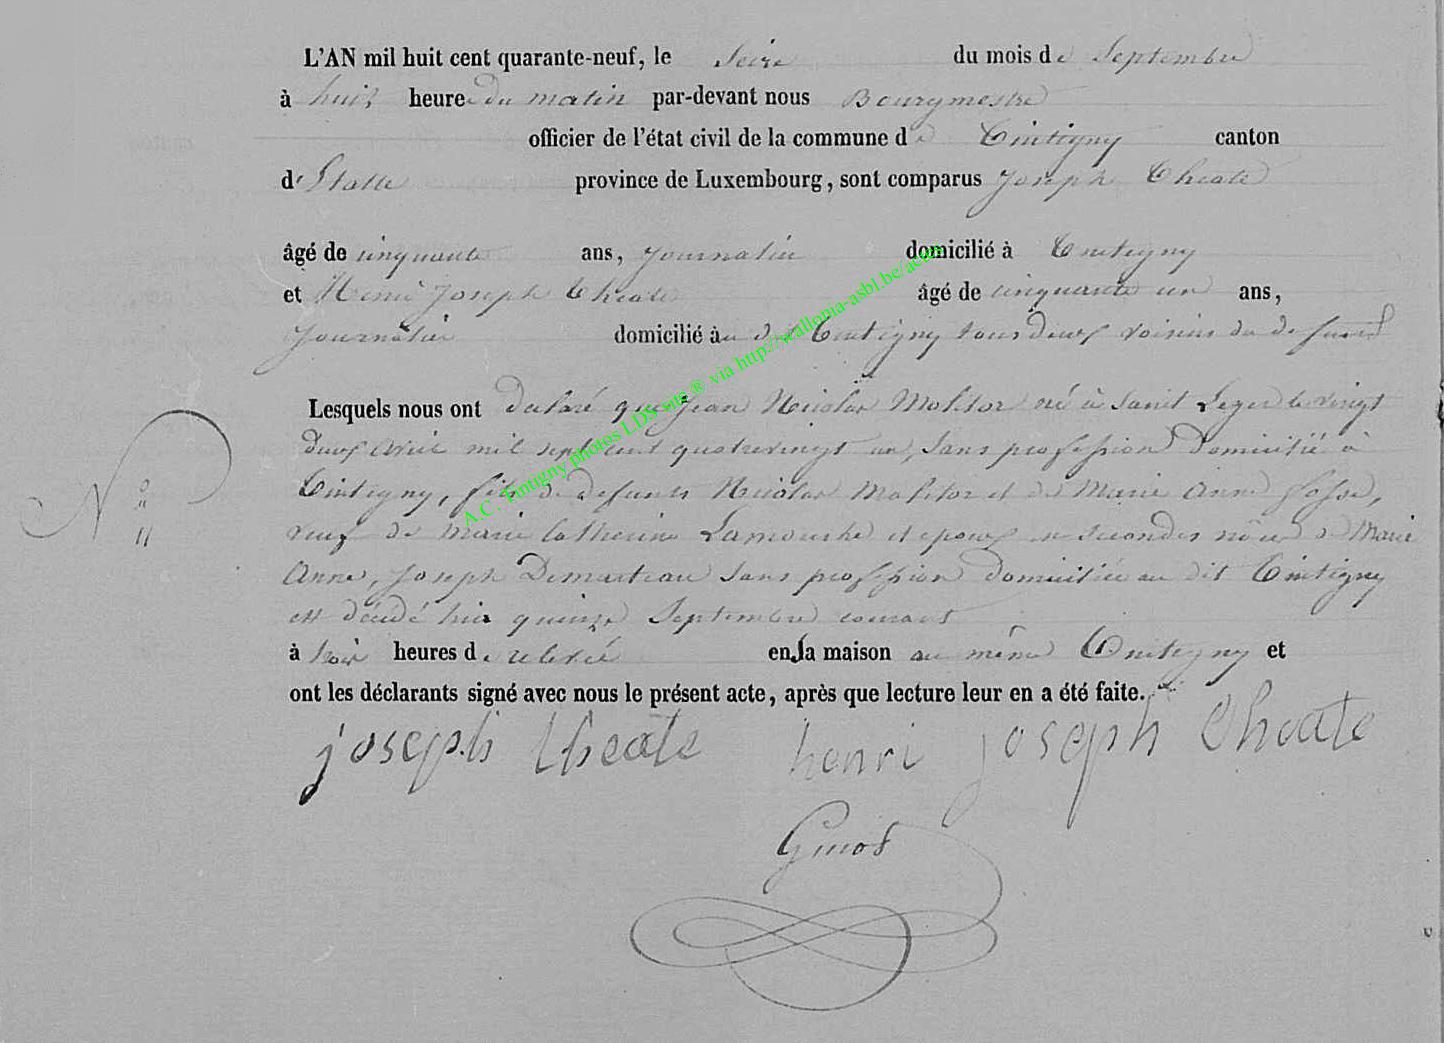 L'AN mil huit cent quarante-neuf, le Seize du mois de Septembre
à huit heures du matin par-devant nous Bourgmestre
officier de l'état civil de la commune de Tintigny canton
d'Etalle province de Luxembourg, sont comparus Joseph Theate
âgé de cinquante ans, journalier domicilié à Tintigny
et Henri Joseph Theate âgé de cinquante un ans,
journalier domicilié au dit Tintigny tous deux voisins du defunt
Lesquels nous ont declaré que Jean Nicolas Molitor né à Saint Leger le vingt
deux avril mil sept cent quatrevingt un, sans profession domicilié à
Tintigny, fils de defunts Nicolas Molitor et de Marie Anne Fosse,
veuf de Marie Catherine Lamouche et epoux en secondes nôces de Marie
Anne, Joseph Demarteau sans profession domiciliée au dit Tintigny
est décédé hier quinze Septembre courant
N° 11
à trois heures de relevée en la maison au même Tintigny et
ont les déclarants signé avec nous le présent acte, après que lecture leur en a été faite.
joseph theate henri joseph theate
A.C. Tintigny photos LDS site ® via http://wallonia-asbl.be/actes